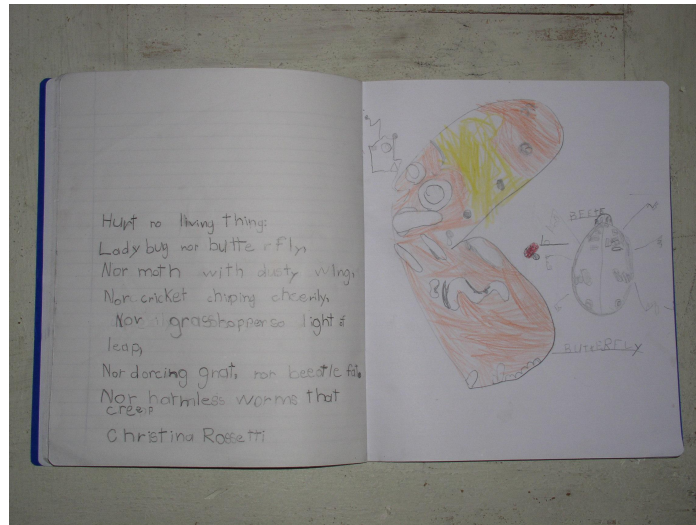 Hurt no living thing:
Ladybug nor butterfly,
Nor moth with dusty wing,
Nor cricket chiping cheerily,
Nor grasshopper so light &
leap,
Nor dancing gnat, nor beetle fat,
Nor harmless worms that
creep
Christina Rossetti
BUTTERFLY